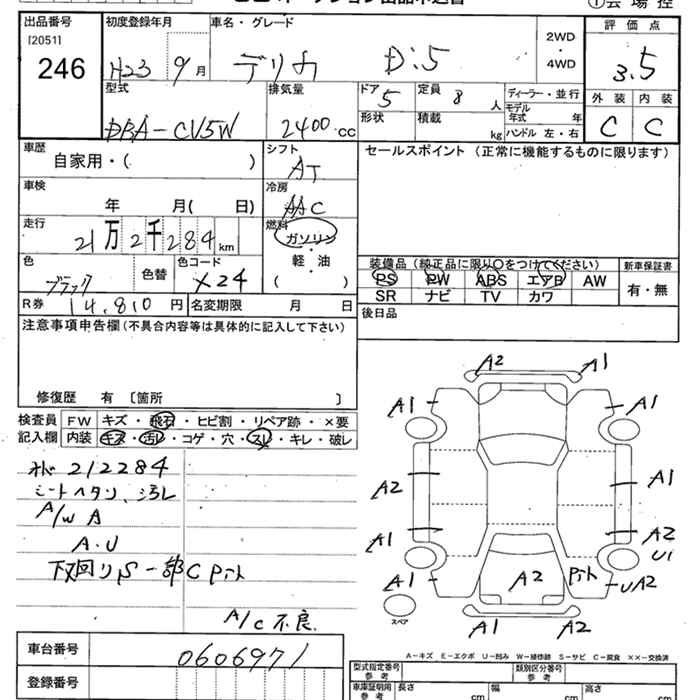 ①会場控
出品番号 初度登録年月 車名・グレード 2WD・4WD 評価点
[2051]
246 H23 9月 デリカ D:5 3.5
型式 排気量 ドア 定員 ディーラー・並行 外装 内装
DBA-CV5W 2400cc 5 8人 モデル年式 年 C C
形状 積載 kg ハンドル 左・右
車歴 シフト セールスポイント (正常に機能するものに限ります)
自家用・( ) AT
車検 冷房
年 月( 日) AAC
走行 燃料
21万2千284km ガソリン・軽・油
( )
装備品 (純正品に限り〇をつけてください) 新車保証書
色 色替 色コード
ブラック X24
PS PW ABS エアB AW 有・無
SR ナビ TV カワ
R券 14,810円 名変期限 月 日
後日品
注意事項申告欄 (不具合内容等は具体的に記入して下さい)
修復歴 有 〔箇所 〕
検査員 FW キズ・飛石・ヒビ割・リペア跡・×要
記入欄 内装 キズ・汚レ・コゲ・穴・スレ・キレ・破レ
オド 212284
シートヘタリ、汚レ
A/W A
A・U
下回りS 一部Cﾎﾟｲﾝﾄ
A/C 不良
A2 A1
A1 A1
A2 A1
A1 A2
U1
A1 A2 UA2
スペア
A1 A2
A-キズ E-エクボ U-凹み W-補修跡 S-サビ C-腐食 ××-交換済
車台番号 0606971
登録番号
型式指定番号 参考 類別区分番号 参考
車庫証明用 参考 長さ cm 幅 cm 高さ cm